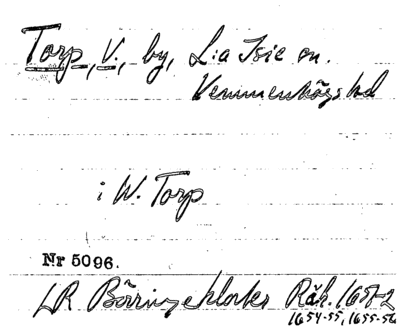 Torp, V., by, L:a Isie sn.
Vemmenhögs hd
i W. Torp
Nr 5096.
LR Börringeklosters Räk. 1651-2
1654-55, 1655-56